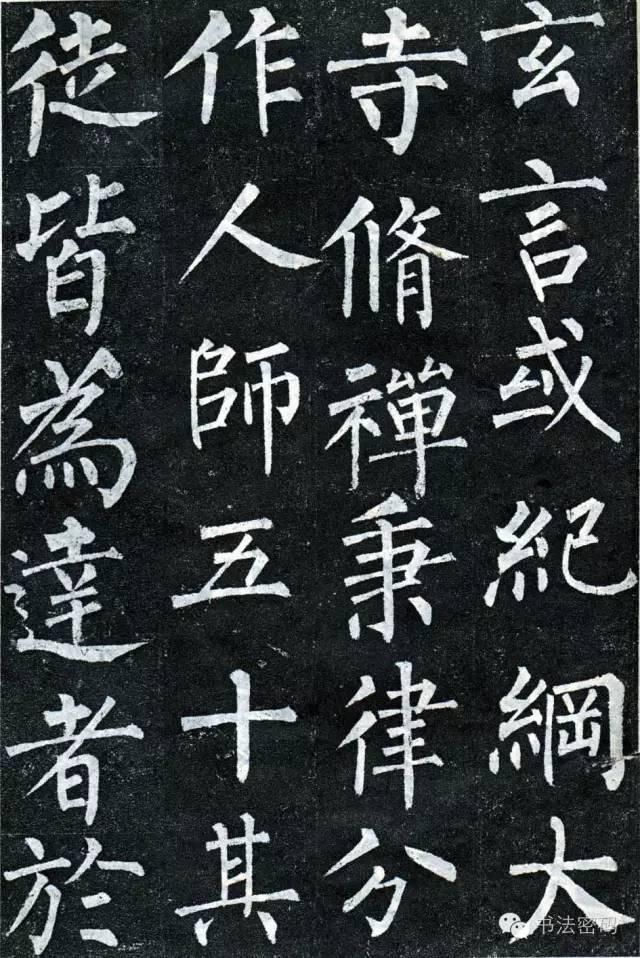 玄言或紀綱大
寺脩禪秉律分
作人師五十其
徒皆為達者於
书法密码